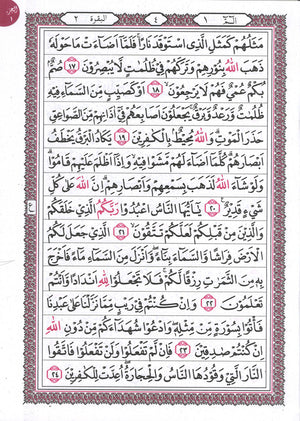 الٓمّٓ ١ ٤ البقرة ٢
مَثَلُهُمْ كَمَثَلِ الَّذِى اسْتَوْقَدَ نَارًا فَلَمَّآ اَضَآءَتْ مَا حَوْلَهٗ
ذَهَبَ اللّٰهُ بِنُوْرِهِمْ وَتَرَكَهُمْ فِىْ ظُلُمٰتٍ لَّا يُبْصِرُوْنَ ۝١٧ صُمٌّۢ
بُكْمٌ عُمْىٌ فَهُمْ لَا يَرْجِعُوْنَ ۝١٨ اَوْ كَصَيِّبٍ مِّنَ السَّمَآءِ فِيْهِ
ظُلُمٰتٌ وَّرَعْدٌ وَّبَرْقٌ يَجْعَلُوْنَ اَصَابِعَهُمْ فِىْٓ اٰذَانِهِمْ مِّنَ الصَّوَاعِقِ
حَذَرَ الْمَوْتِ وَاللّٰهُ مُحِيْطٌۢ بِالْكٰفِرِيْنَ ۝١٩ يَكَادُ الْبَرْقُ يَخْطَفُ
اَبْصَارَهُمْ كُلَّمَآ اَضَآءَ لَهُمْ مَّشَوْا فِيْهِ وَاِذَآ اَظْلَمَ عَلَيْهِمْ قَامُوْا
وَلَوْ شَآءَ اللّٰهُ لَذَهَبَ بِسَمْعِهِمْ وَاَبْصَارِهِمْ اِنَّ اللّٰهَ عَلٰى كُلِّ
شَىْءٍ قَدِيْرٌ ۝٢٠ يٰٓاَيُّهَا النَّاسُ اعْبُدُوْا رَبَّكُمُ الَّذِىْ خَلَقَكُمْ
وَالَّذِيْنَ مِنْ قَبْلِكُمْ لَعَلَّكُمْ تَتَّقُوْنَ ۝٢١ الَّذِىْ جَعَلَ لَكُمُ
الْاَرْضَ فِرَاشًا وَّالسَّمَآءَ بِنَآءً وَّاَنْزَلَ مِنَ السَّمَآءِ مَآءً فَاَخْرَجَ
بِهٖ مِنَ الثَّمَرٰتِ رِزْقًا لَّكُمْ فَلَا تَجْعَلُوْا لِلّٰهِ اَنْدَادًا وَّاَنْتُمْ
تَعْلَمُوْنَ ۝٢٢ وَاِنْ كُنْتُمْ فِىْ رَيْبٍ مِّمَّا نَزَّلْنَا عَلٰى عَبْدِنَا
فَاْتُوْا بِسُوْرَةٍ مِّنْ مِّثْلِهٖ وَادْعُوْا شُهَدَآءَكُمْ مِّنْ دُوْنِ اللّٰهِ
اِنْ كُنْتُمْ صٰدِقِيْنَ ۝٢٣ فَاِنْ لَّمْ تَفْعَلُوْا وَلَنْ تَفْعَلُوْا فَاتَّقُوا
النَّارَ الَّتِىْ وَقُوْدُهَا النَّاسُ وَالْحِجَارَةُ اُعِدَّتْ لِلْكٰفِرِيْنَ ۝٢٤